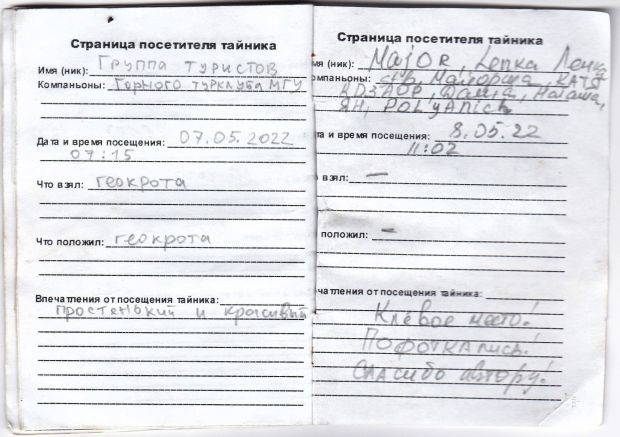 Страница посетителя тайника
Имя (ник): Группа туристов
Компаньоны: Горного турклуба МГУ
Дата и время посещения: 07.05.2022
07:15
Что взял: геокрота
Что положил: геокрота
Впечатления от посещения тайника:
простенький и красивый
Страница посетителя тайника
мя (ник): Major, Lenka Ленка
омпаньоны: Майорша, Катя
Даша, Наташа,
ЯН, POLyANich
та и время посещения: 8.05.22
11:02
взял: —
положил: —
чатления от посещения тайника:
Клёвое место!
Пофоткались!
Спасибо автору!